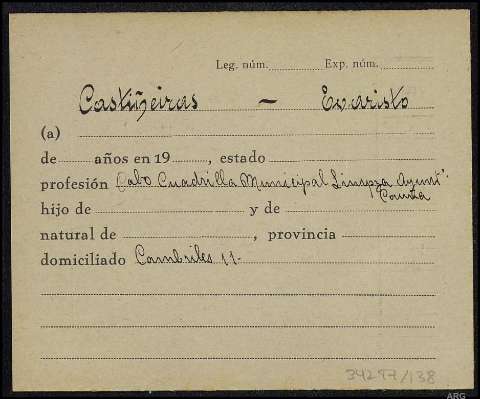 Leg. núm. Exp. núm.
Castiñeiras - Evaristo
(a)
de años en 19 , estado
profesión Cabo Cuadrilla Municipal Limpza Ayumt°
Coruña
hijo de y de
natural de , provincia
domiciliado Cambriles 11-
34297/138
ARG